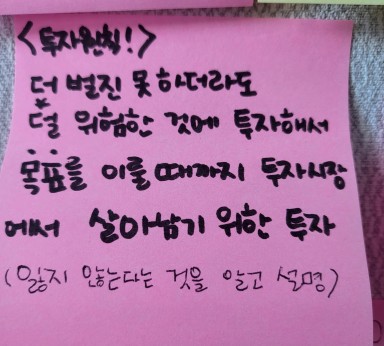 <투자원칙!>
더 벌진 못하더라도
덜 위험한 것에 투자해서
목표를 이룰 때까지 투자시장
에서 살아남기 위한 투자
(잃지 않는다는 것을 알고 설명)